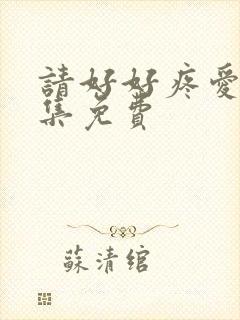 請好好疼愛
集免費
蘇清綰